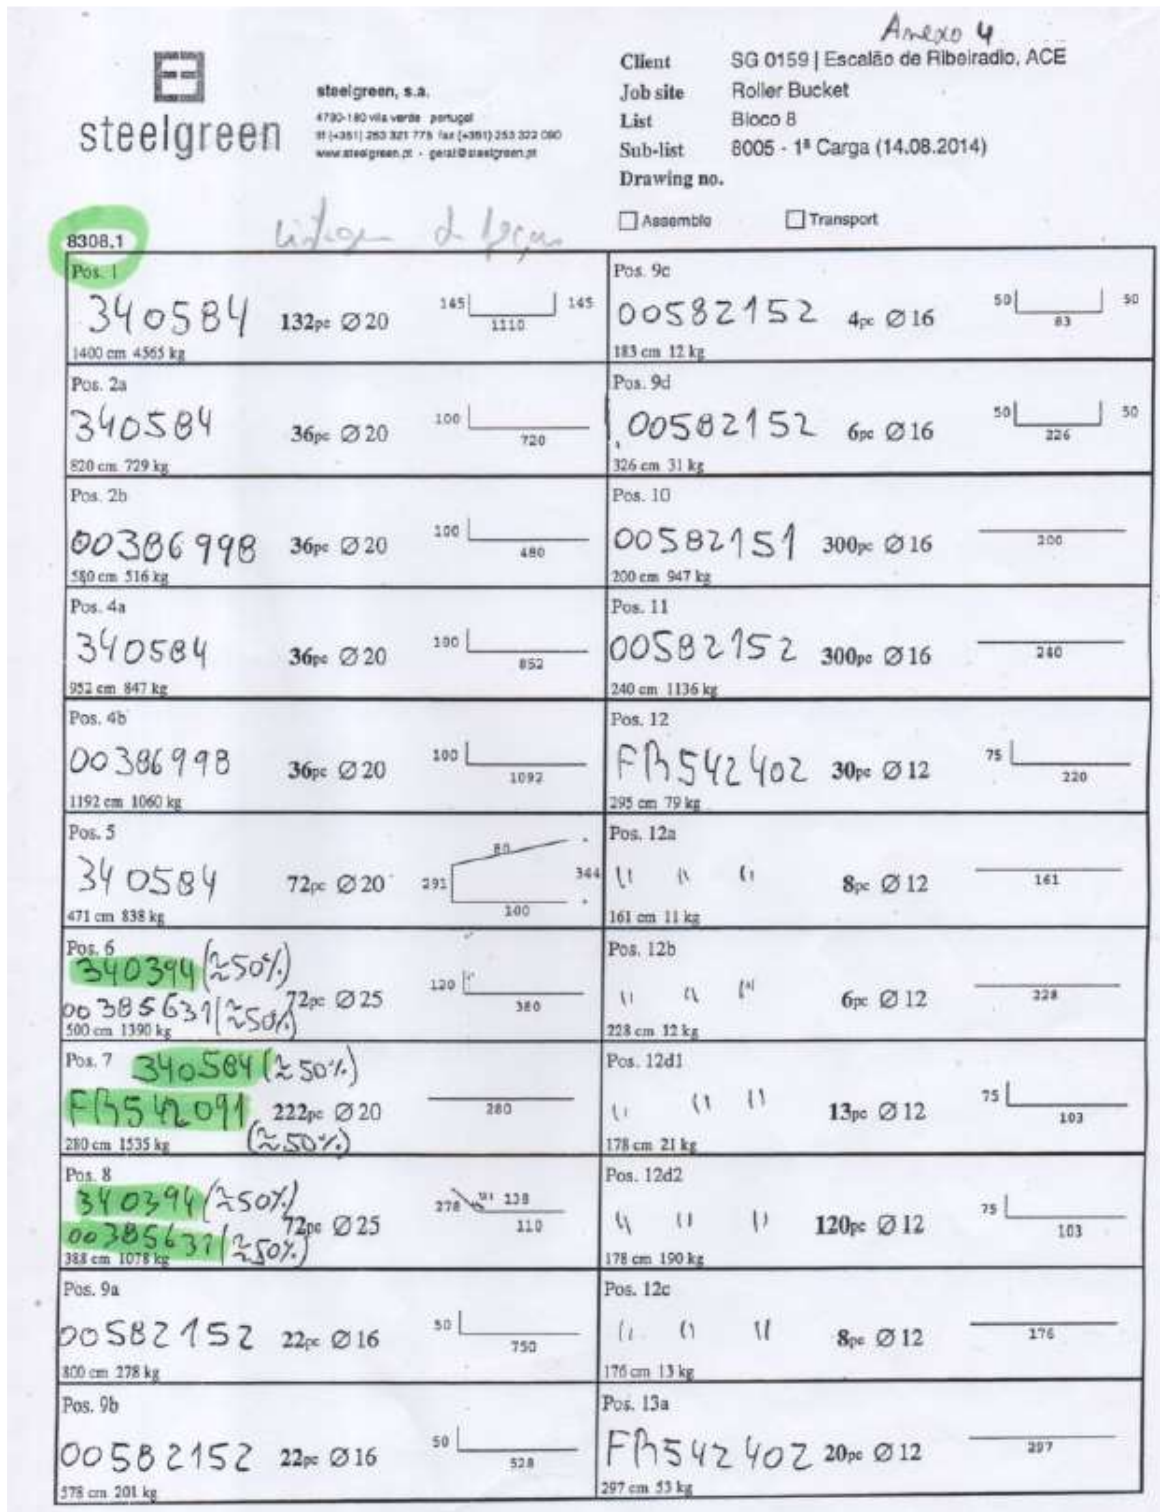 Anexo 4
steelgreen
steelgreen, s.a.
4730-180 vila verde portugal
tlf (+351) 253 321 775 fax (+351) 253 322 090
www.steelgreen.pt - geral@steelgreen.pt
Client SG 0159 | Escalão de Ribeiradio, ACE
Job site Roller Bucket
List Bloco 8
Sub-list 8005 - 1ª Carga (14.08.2014)
Drawing no.
Assemble Transport
8308,1
Pos. 1
340584 132pc Ø 20
145 1110 145
1400 cm 4565 kg
Pos. 2a
340584 36pc Ø 20
100 720
820 cm 729 kg
Pos. 2b
00386998 36pc Ø 20
100 480
580 cm 516 kg
Pos. 4a
340584 36pc Ø 20
100 852
952 cm 847 kg
Pos. 4b
00386998 36pc Ø 20
100 1092
1192 cm 1060 kg
Pos. 5
340584 72pc Ø 20
80 291 344 100
471 cm 838 kg
Pos. 6
340394 (≈50%)
00385631 (≈50%) 72pc Ø 25
120 380
500 cm 1390 kg
Pos. 7 340584 (≈50%)
FR542091 222pc Ø 20
280
(≈50%)
280 cm 1535 kg
Pos. 8
340394 (≈50%)
00385631 (≈50%) 72pc Ø 25
278 238 110
388 cm 1078 kg
Pos. 9a
00582152 22pc Ø 16
50 750
800 cm 278 kg
Pos. 9b
00582152 22pc Ø 16
50 528
578 cm 201 kg
Pos. 9c
00582152 4pc Ø 16
50 83 50
183 cm 12 kg
Pos. 9d
00582152 6pc Ø 16
50 226 50
326 cm 31 kg
Pos. 10
00582151 300pc Ø 16
200
200 cm 947 kg
Pos. 11
00582152 300pc Ø 16
240
240 cm 1136 kg
Pos. 12
FR542402 30pc Ø 12
75 220
295 cm 79 kg
Pos. 12a
" " " 8pc Ø 12
161
161 cm 11 kg
Pos. 12b
" " " 6pc Ø 12
228
228 cm 12 kg
Pos. 12d1
" " " 13pc Ø 12
75 103
178 cm 21 kg
Pos. 12d2
" " " 120pc Ø 12
75 103
178 cm 190 kg
Pos. 12c
" " " 8pc Ø 12
176
176 cm 13 kg
Pos. 13a
FR542402 20pc Ø 12
297
297 cm 53 kg